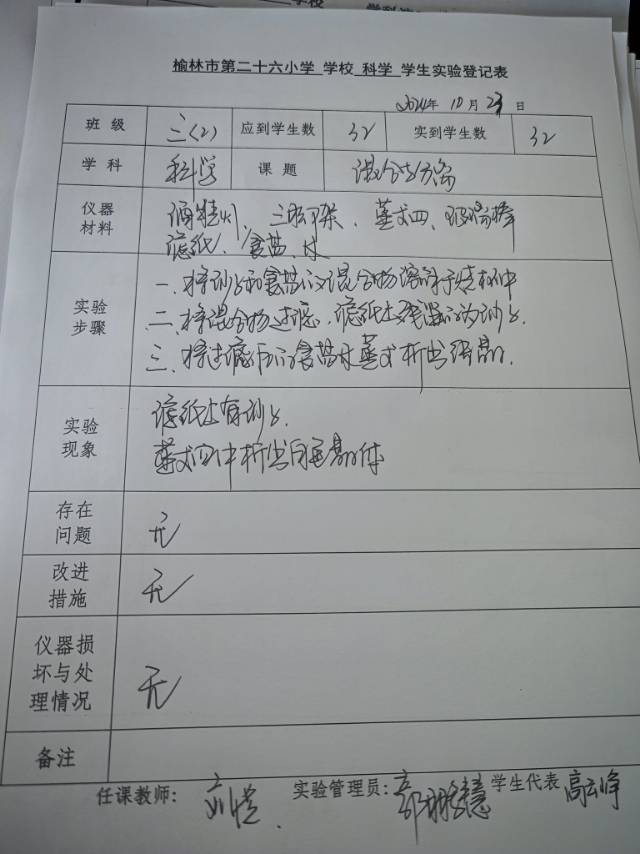 榆林市第二十六小学 学校 科学 学生实验登记表
2024年 10月 23日
班级 三(2) 应到学生数 32 实到学生数 32
学科 科学 课题 混合与分离
仪器材料 酒精灯、三脚架、蒸发皿、玻璃棒
滤纸、食盐、水
实验步骤 一、将沙与和食盐的混合物溶解于烧杯中
二、将混合物过滤,滤纸上残留的为沙与.
三、将过滤后的食盐水蒸发析出结晶.
实验现象 滤纸上有沙与.
蒸发皿中析出白色晶体
存在问题 无
改进措施 无
仪器损坏与处理情况 无
备注
任课教师: 实验管理员: 学生代表